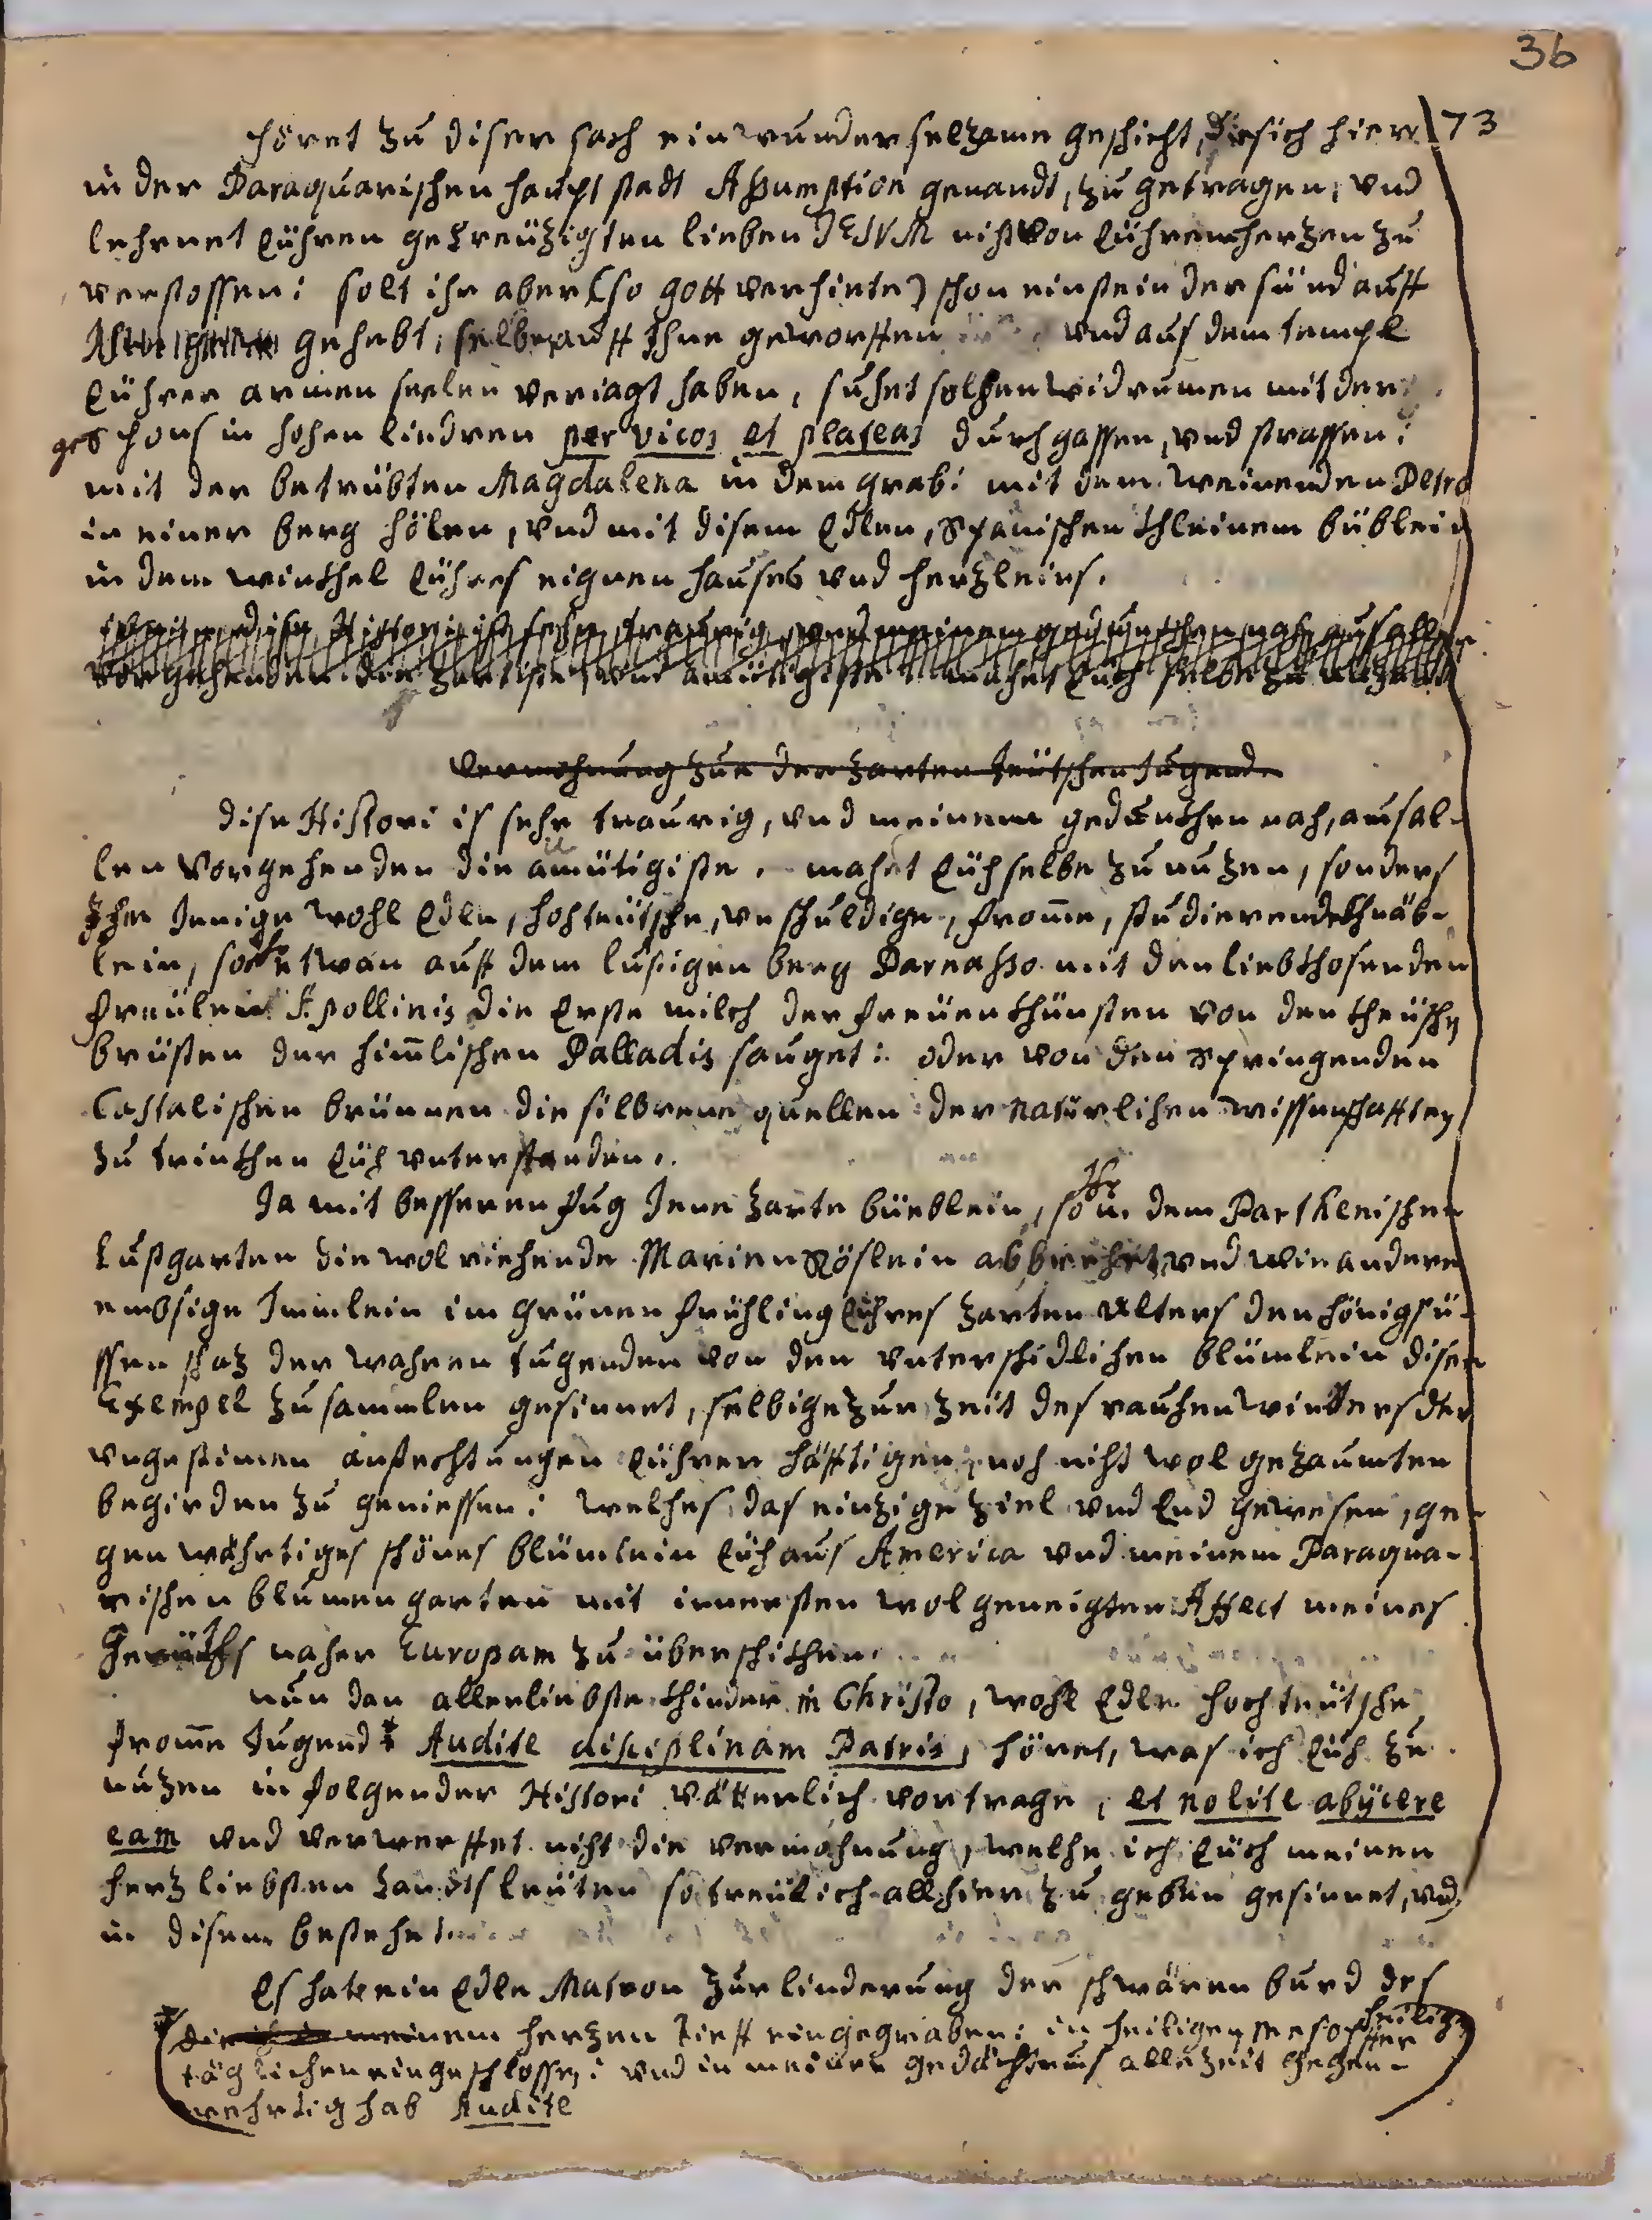 36
73
höret zu diser sach ein wunderseltzame geschicht, die sich hier
in der Paraquarischen haupt stadt Assumption genandt, zu getragen, vnd
lehrnet Eühren gekreützigten lieben JESVM niht von Eührem hertzen zu
verstossen: solt ihr aber (so gott verhiete) schon ein stein der sünd auff
gehebt, selbe auff Ihne geworffen vnd aus dem tempel
Eührer armen seelen veriagt haben, suhet solhen widrumen mit der
gespons in hohen liedren per vicos et plateas durch gassen, vnd strassen:
mit der betrübten Magdalena in dem grab: mit dem weinenden Petro
in einer berg hölen, vnd mit disem Edlen, Spanischen khleinem büblein
in dem winkhel Eühres eignen hauses vnd hertzleins.
dise Histori ist sehr traurig, vnd meinem gedunkhen nah aus allen
vorgehenden die zartiste, vnd amütigiste mahet Euch selbe zu nutzen
Vermahnung zur der zarten teütschen Jugend.
dise Histori is sehr traurig, vnd meinem gedunkhen nah, aus al-
len vorgehenden die amütigiste. mahet Eüh selbe zu nuzen, sonders
Ihr Jenige wohl Edle, hohteütsche, vnschuldige, fromme, studierende khnäb-
lein, so Ihr etwan auff dem lustigen berg Parnasso mit den liebkhosenden
freülein Apollinis die Erste milch der freüen khünsten von den kheüschen
brüsten der himmlischen Palladis sauget: oder von den springenden
Castalischen brünnen die silberne quellen der natürlichen wissenschafften
zu trinkhen Eüh vnterstanden.
Ja mit besseren fug Jene zarte büeblein, so Ihr in dem Parthenischen
Lustgarten die wolriehende Marien Röslein abbrehet, vnd wie andere
embsige Immlein im grünen frühling Eühres zarten Alters den hönigsü-
ssen shaz der wahren tugenden von den vnterschidlichen blümlein diser
Exempel zu sammlen gesinnet, selbige zur zeit des rauhen winters der
vngestimen anfechtungen Eührer häfftigen, noh niht wol gezaumten
begirden zu geniessen: welhes das einzige ziel vnd End gewesen, ge-
gen währtiges schönes blümlein Eüh aus America vnd meinem Paraqua-
rischen blumengarten mit innersten wolgeneigten Affect meines
gemüths naher Europam zu überschikhen.
nun dan allerliebste khinder in Christo, wohl Edle hochteütsche
fromme Jugend * Audite disciplinam Patris, höret, was ich Eüh zu
nuzen in folgender Histori vätterlich vortrage, et nolite abijcere
eam vnd verwerffet niht die vermahnung, welhe ich Eüch meinen
hertz liebsten Landtsleüten so treülich allhier zu geben gesinnet, vnd
in disem bestehet.
Es hate ein Edle Matron zur linderung der schwären burd des
* die ich in meinem hertzen tieff eingegraben: in heiligen Mesopffer
heiligen
täglichen eingeschlossen: vnd in meiner gedächtnus alle zeit gegen-
wehrtig hab Audite